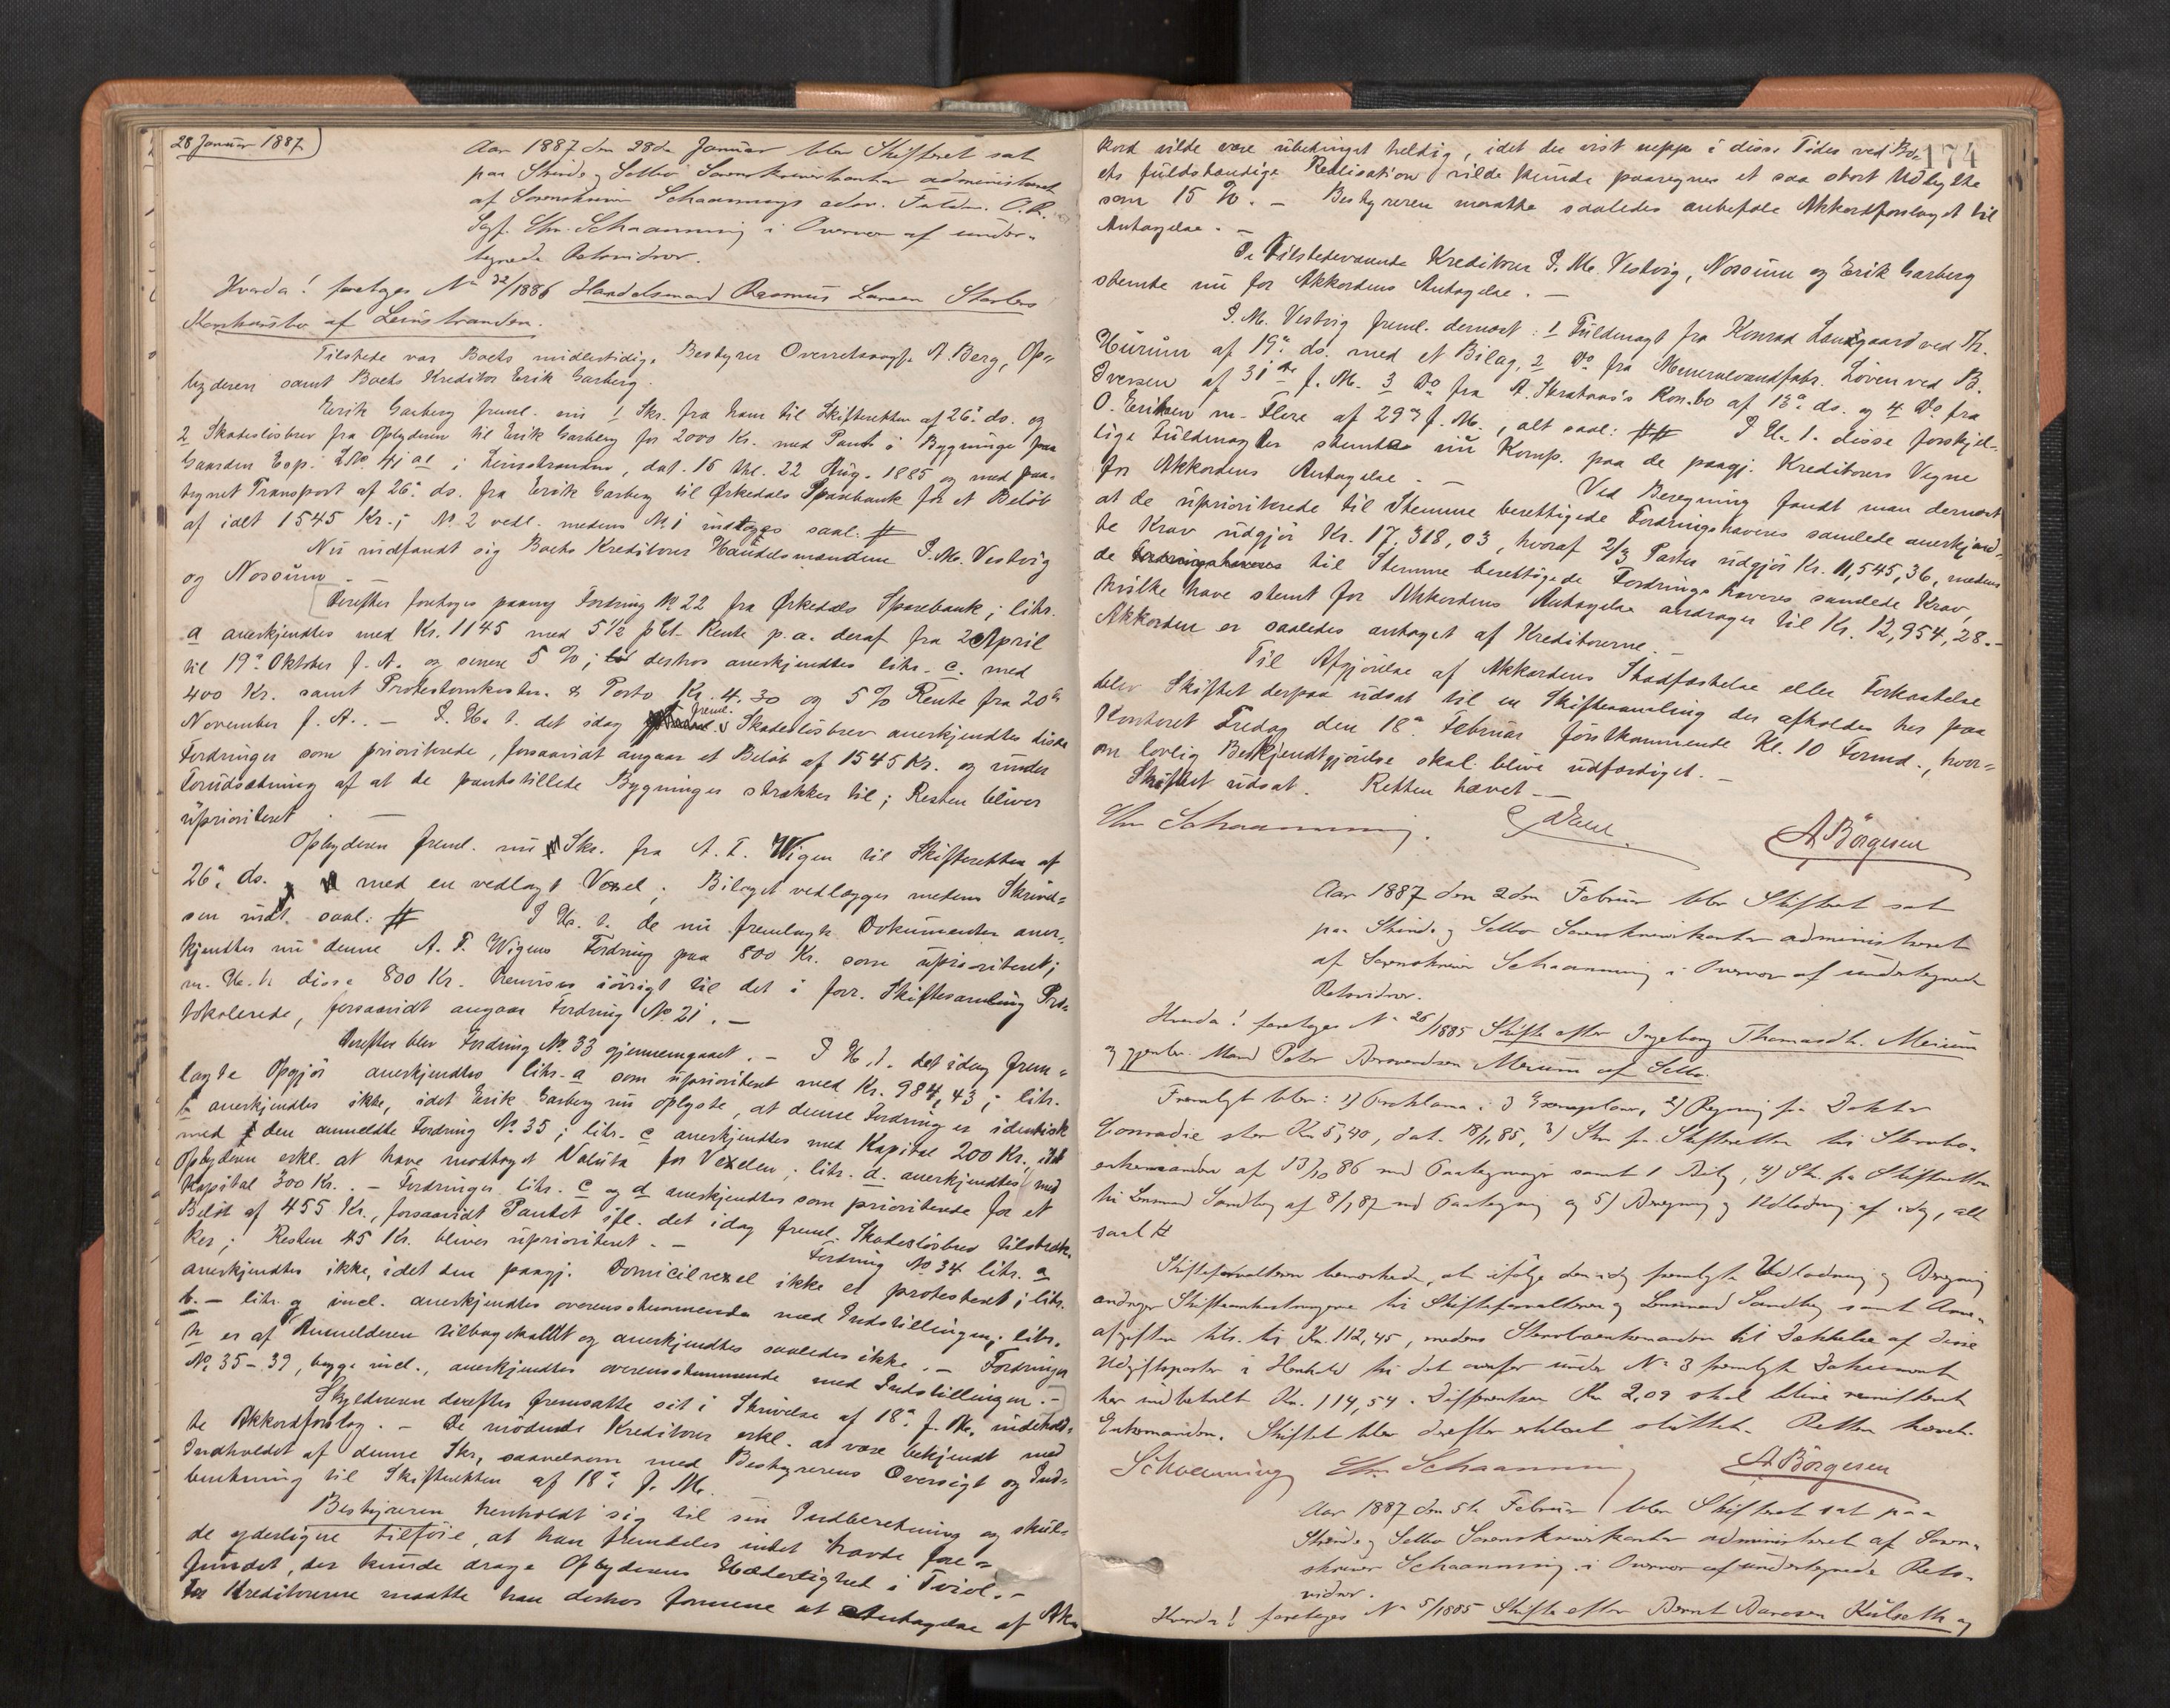 28 Januar 1887
Aar 1887 den 28de Januar blev Skifteret sat
paa Strinde og Selbo Sorenskriverkontor administreret
af Sorenskriver Schaannings adm. Fuldm. O.R.
Sagf. Chr. Schaanning i Overvær af under-
tegnede Retsvidner.
Hvorda! foretoges No 32/1886 Handelsmand Rasmus Larsen Storlers
Konkursbo af Leinstranden.
Tilstede var Boets midlertidige Bestyrer Overretssagf. A. Berg, Op-
byderen samt Boets Kreditor Erik Garberg.
Erik Garberg freml. nu 1 Skr. fra ham til Skifteretten af 26de ds. og
2 Skadesløsbrev fra Opbyderen til Erik Garberg for 2000 Kr. med Pant i Bygninger paa
Gaarden Esp. LNo 41 a1 i Leinstranden, dat. 15 thl. 22 Aug. 1885 og med paa-
tegnet Transport af 26de ds. fra Erik Garberg til Ørkedals Sparebank for et Beløb
af idet 1545 Kr.; No 2 vedl. medens No 1 indtages saal: #
Nu indfandt sig Boets Kreditorer Handelsmændene I. M. Vestvig
og Nossum.
Derefter foretoges paany Fordring No 22 fra Ørkedals Sparebank; litr.
a anerkjendtes med Kr. 1145 med 5½ pCt. Rente p.a. deraf fra 2 April
til 19de Oktober f. A. og senere 5 %; desuden anerkjendtes litr. c. med
400 Kr. samt Protestomkostn. & Porto Kr. 4.30 og 5 % Rente fra 20de
November f. A. – I H. t. det idag freml. Skadesløsbrev anerkjendtes disse
Fordringer som prioriterede, forsaavidt angaar et Beløb af 1545 Kr. og under
Forudsætning af at de pantstillede Bygninger strækker til; Resten bliver
uprioriteret.
Opbyderen freml. nu Skr. fra A. T. Wigen til Skifteretten af
26de ds. med en vedlagt Vexel; Bilaget vedlægges medens Skrivel-
sen indt. saal: # I H. t. de nu fremlagte Dokumenter aner-
kjendtes nu denne A. T. Wigens Fordring paa 800 Kr. som uprioriteret;
m. H. t. disse 800 Kr. henvises iøvrigt til det i forr. Skiftesamling Pro-
tokolerede, forsaavidt angaar Fordring No 21. –
Derefter blev Fordring No 33 gjennemgaaet. – I H. t. det idag frem-
lagte Opgjør anerkjendtes litr. a som uprioriteret med Kr. 984,43; litr.
b anerkjendtes ikke, idet Erik Garberg nu oplyste, at denne Fordring er identisk
med den anmeldte Fordring No 35; litr. c anerkjendtes med Kapital 200 Kr., idet
Opbyderen erkl. at have modtaget Valuta for Vexelen; litr. d. anerkjendtes med
Kapital 300 Kr. – Fordringer litr. c og d anerkjendtes som prioriterede for et
Beløb af 455 Kr., forsaavidt Pantet ifl. det idag freml. Skadesløsbrev tilstræk-
ker; Resten 45 Kr. bliver uprioriteret. – Fordring No 34 litr. a
anerkjendtes ikke, idet den paagj. Domicilvexel ikke er protesteret; litr.
b. – litr. g incl. anerkjendtes overensstemmende med Indstillingen; litr.
h er af Anmelderen tilbagekaldt og anerkjendtes saaledes ikke. – Fordringer
No 35–39, begge incl., anerkjendtes overensstemmende med Indstillingen. –
Skylderen derefter fremsatte sit i Skrivelse af 18de f. M. indehold-
te Akkordforslag. – De mødende Kreditorer erkl. at være bekjendt med
Indholdet af denne Skr., saavelsom med Bestyrerens Oversigt og Ind-
beretning til Skifteretten af 18de f. M.
Bestyreren henholdt sig til sin Indberetning og skul-
de yderligere tilføie, at han fremdeles intet havde fore-
fundet, der kunde drage Opbyderens Hæderlighed i Tvivl. –
For Kreditorerne maatte han derhos formene at Antagelse af Ak-
174
kord vilde være ubetinget heldig, idet der vist neppe i disse Tider ved Bo-
ets fuldstændige Realisation vilde kunde paaregnes et saa stort Udbytte
som 15 %. – Bestyreren maatte saaledes anbefale Akkordforslaget til
Antagelse. –
De Tilstedeværende Kreditorer I. M. Vestvig, Nossum og Erik Garberg
stemte nu for Akkordens Antagelse. –
I. M. Vestvig freml. dernæst: 1 Fuldmagt fra Konrad Langgaard ved Th.
Hurum af 19de ds. med et Bilag, 2 Do fra Mineralvandfabr. Løven ved B.
Iversen af 31de f. M. 3 Do fra A. Skrataas's Kon.bo af 13de ds. og 4 Do fra
O. Eriksen m. Flere af 29de f. M., alt saal: ## I H. t. disse forskjel-
lige Fuldmagter stemte nu Komp. paa de paagj. Kreditorers Vegne
for Akkordens Antagelse. – Ved Beregning fandt man dernæst
at de uprioriterede til Stemme berettigede Fordringshaveres samlede anerkjend-
te Krav udgjør Kr. 17,318,03, hvoraf 2/3 Parter udgjør Kr. 11,545,36, medens
de til Stemme berettigede Fordringshaveres samlede Krav,
hvilke have stemt for Akkordens Antagelse andrager til Kr. 12,954,28. –
Akkorden er saaledes antaget af Kreditorerne. –
Til Afgjørelse af Akkordens Stadfæstelse eller Forkastelse
blev Skiftet derpaa udsat til en Skiftesamling der afholdes her paa
Kontoret Fredag den 18de Februar førstkommende Kl. 10 Formd., hvor-
om lovlig Bekjendtgjørelse skal blive udfærdiget. –
Skiftet udsat. Retten hævet –
Chr Schaanning. A Börgesen
Aar 1887 den 2den Februar blev Skifteret sat
paa Strinde og Selbo Sorenskriverkontor administreret
af Sorenskriver Schaanning i Overvær af undertegnede
Retsvidner.
Hvorda! foretoges No 26/1885 Skifte efter Ingeborg Thomasdtr. Merum
og gjenlev. Mand Peter Arnsen Merum af Selbo.
Fremlagt blev: 1) Proklama i 3 Exemplarer, 2) Regning fra Doktor
Conradie stor Kr 5,40, dat. 18/1 85, 3) Skr fra Skifteretten til Stervbo-
enkemanden af 13/10 86 med Paategninger samt 1 Bilag, 4) Skr. fra Skifteretten
til Lensmand Sandberg af 8/1 87 med Paategning og 5) Beregning og Udlodning af idag, alt
saal #
Skifteforvalteren bemærkede, at ifølge den idag fremlagte Udlodning og Beregning
andrager Skifteomkostningerne til Skifteforvalteren og Lensmand Sandberg samt Arve-
afgiften tils. til Kr. 112,45, medens Stervboenkemanden til Dækkelse af disse
Udgiftsposter i Henhold til det ovenfor under No 3 fremlagte Dokument
har indbetalt Kr. 114,54. Differentsen Kr 2,09 skal blive remitteret
Enkemanden. Skiftet blev derefter erklæret sluttet. Retten hævet.
Schaanning Chr. Schaanning A Börgesen
Aar 1887 den 5te Februar blev Skifteret sat paa
Strinde og Selbo Sorenskriverkontor administreret af Soren-
skriver Schaanning i Overvær af undertegnede Rets-
vidner.
Hvorda! foretoges No 5/1885 Skifte efter Bernt Larsen Kulseth og